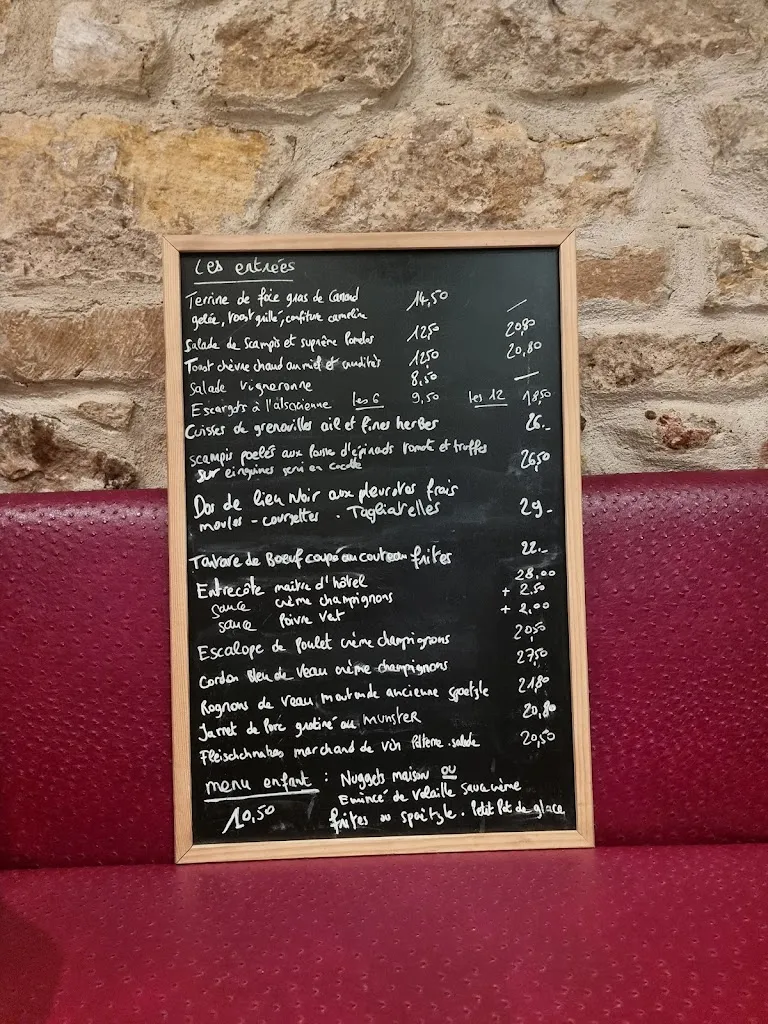 Les entrées
Terrine de foie gras de Canard 14,50 —
gelée, toast grillé, confiture cameline
Salade de Scampis et suprême Pomelos 12,50 20,80
Toast chèvre chaud au miel et crudités 12,50 20,80
Salade vigneronne 8,50 —
Escargots à l'alsacienne les 6 9,50 les 12 18,50
Cuisses de grenouilles ail et fines herbes 26.-
scampis poelés aux pousse d'épinards tomate et truffes 26,50
sur linguines servi en cocotte
Dos de lieu Noir aux pleurotes frais
moules - courgettes . Tagliatelles 29-
Tartare de Boeuf coupé au couteau frites 22.-
Entrecôte maître d'hôtel 28,00
sauce crème champignons + 2.50
sauce Poivre Vert + 2,00
Escalope de Poulet crème champignons 20,50
Cordon Bleu de Veau crème champignons 27,50
Rognons de Veau moutarde ancienne Spaetzle 21,80
Jarret de Porc gratiné au MUNSTER 20,80
Fleischschnakas marchand de vin salade 20,50
menu enfant : Nuggets maison ou
Emincé de Volaille sauce crème
10,50 frites ou spaëtzle . Petit Pot de glace